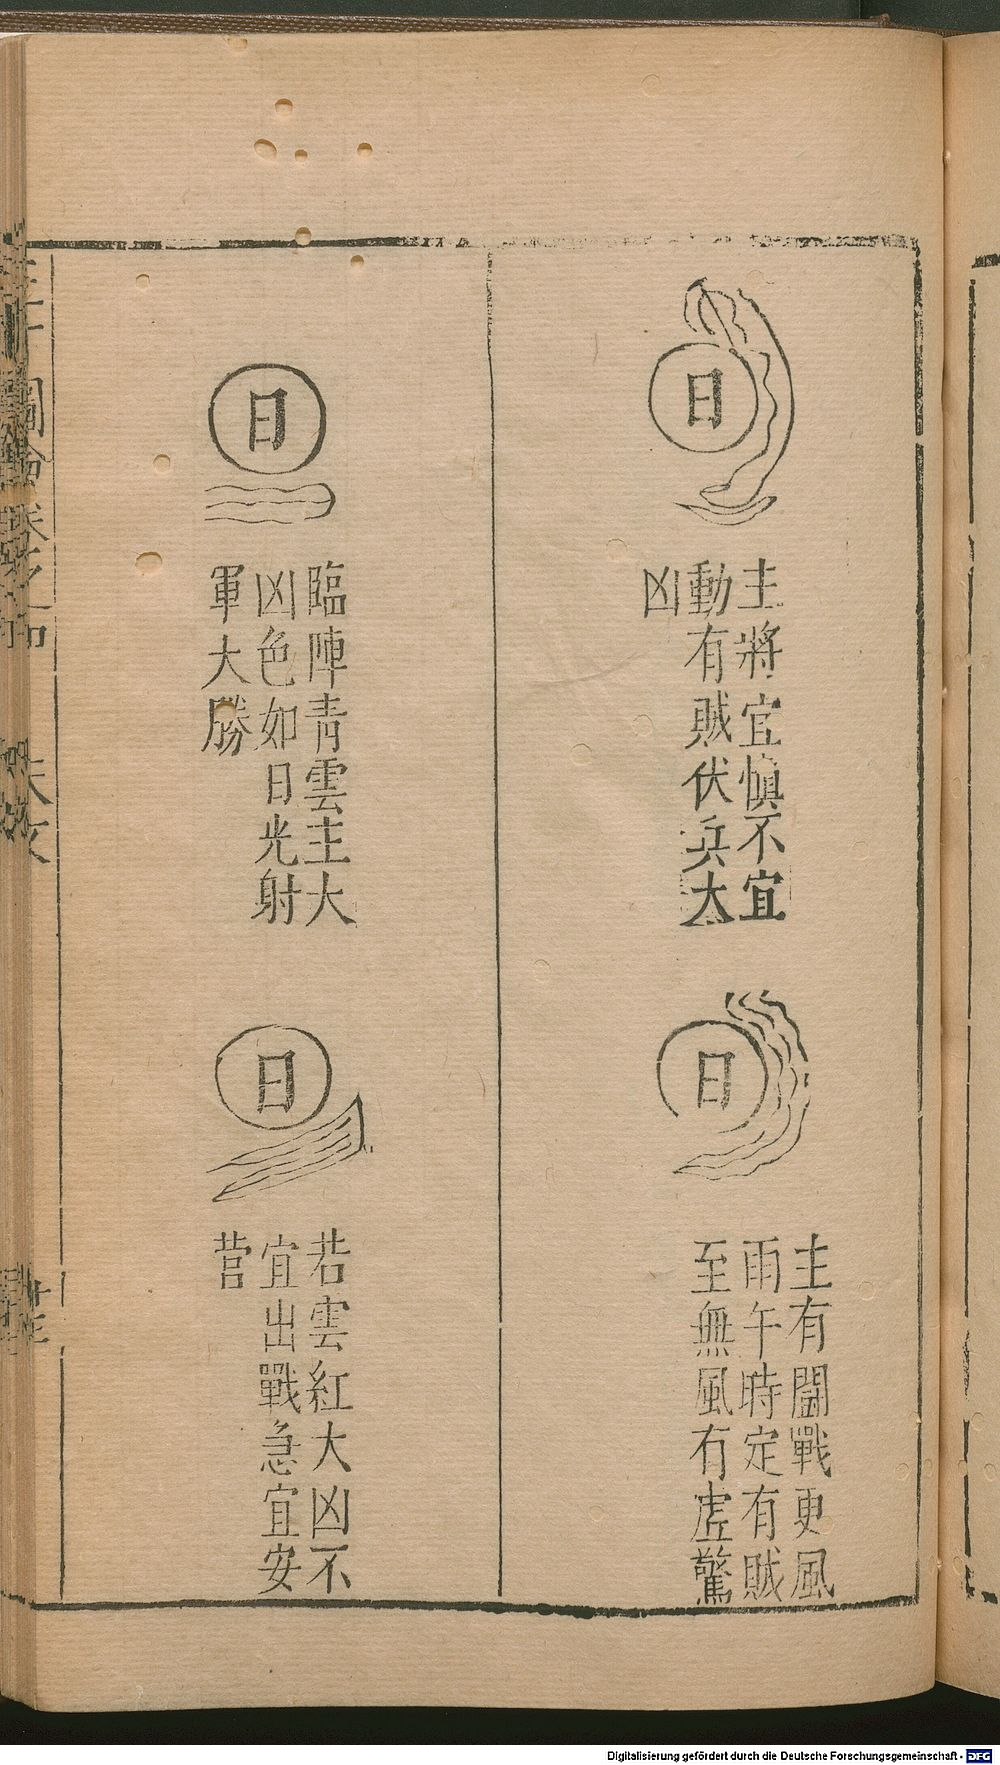 日
主將宜慎不宜
動有賊伏兵大
凶
日
主有鬪戰更風
雨午時定有賊
至無風有虛驚
日
臨陣青雲主大
凶色如日光射
軍大勝
日
若雲紅大凶不
宜出戰急宜安
營
Digitalisierung gefördert durch die Deutsche Forschungsgemeinschaft - DFG